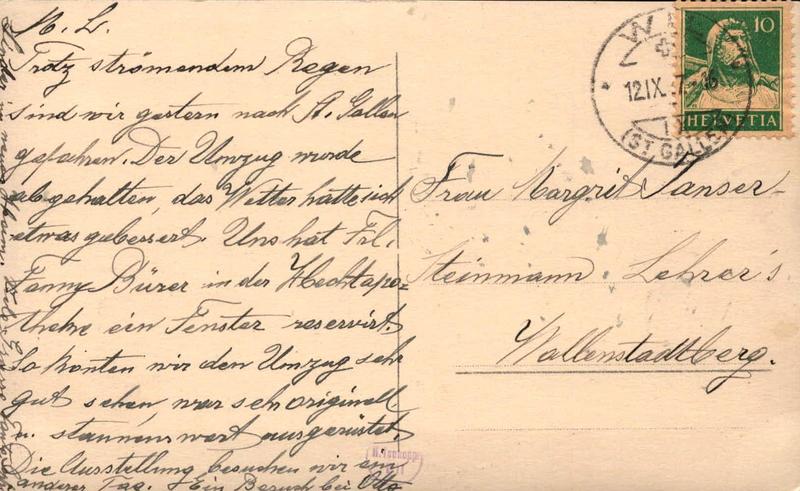 M. L.
Trotz strömendem Regen
sind wir gestern nach St. Gallen
gefahren. Der Umzug wurde
abgehalten, das Wetter hatte sich
etwas gebessert. Uns hat Frl.
Fanny Bürer in der Hechtapo-
theke ein Fenster reservirt.
So konten wir den Umzug sehr
gut sehen, war sehr originell
u. staunenswert ausgerüstet.
Die Ausstellung besuchen wir am
anderer Tag. Ein Besuch bei Otto
10
HELVETIA
12.IX.
(ST GALLEN)
Frau Margrit Tanser-
Steinmann Lehrer's
Wallenstadtberg.